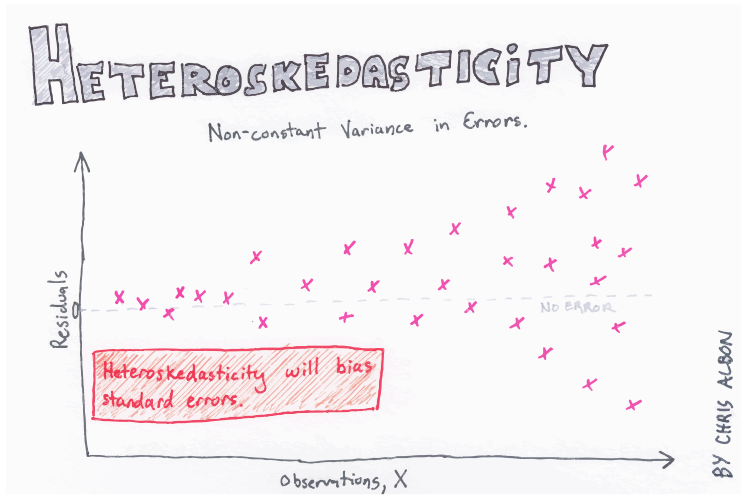 HETEROSKEDASTICITY
Non-constant Variance in Errors.
Residuals
0
NO ERROR
Heteroskedasticity will bias
standard errors.
Observations, X
BY CHRIS ALBON